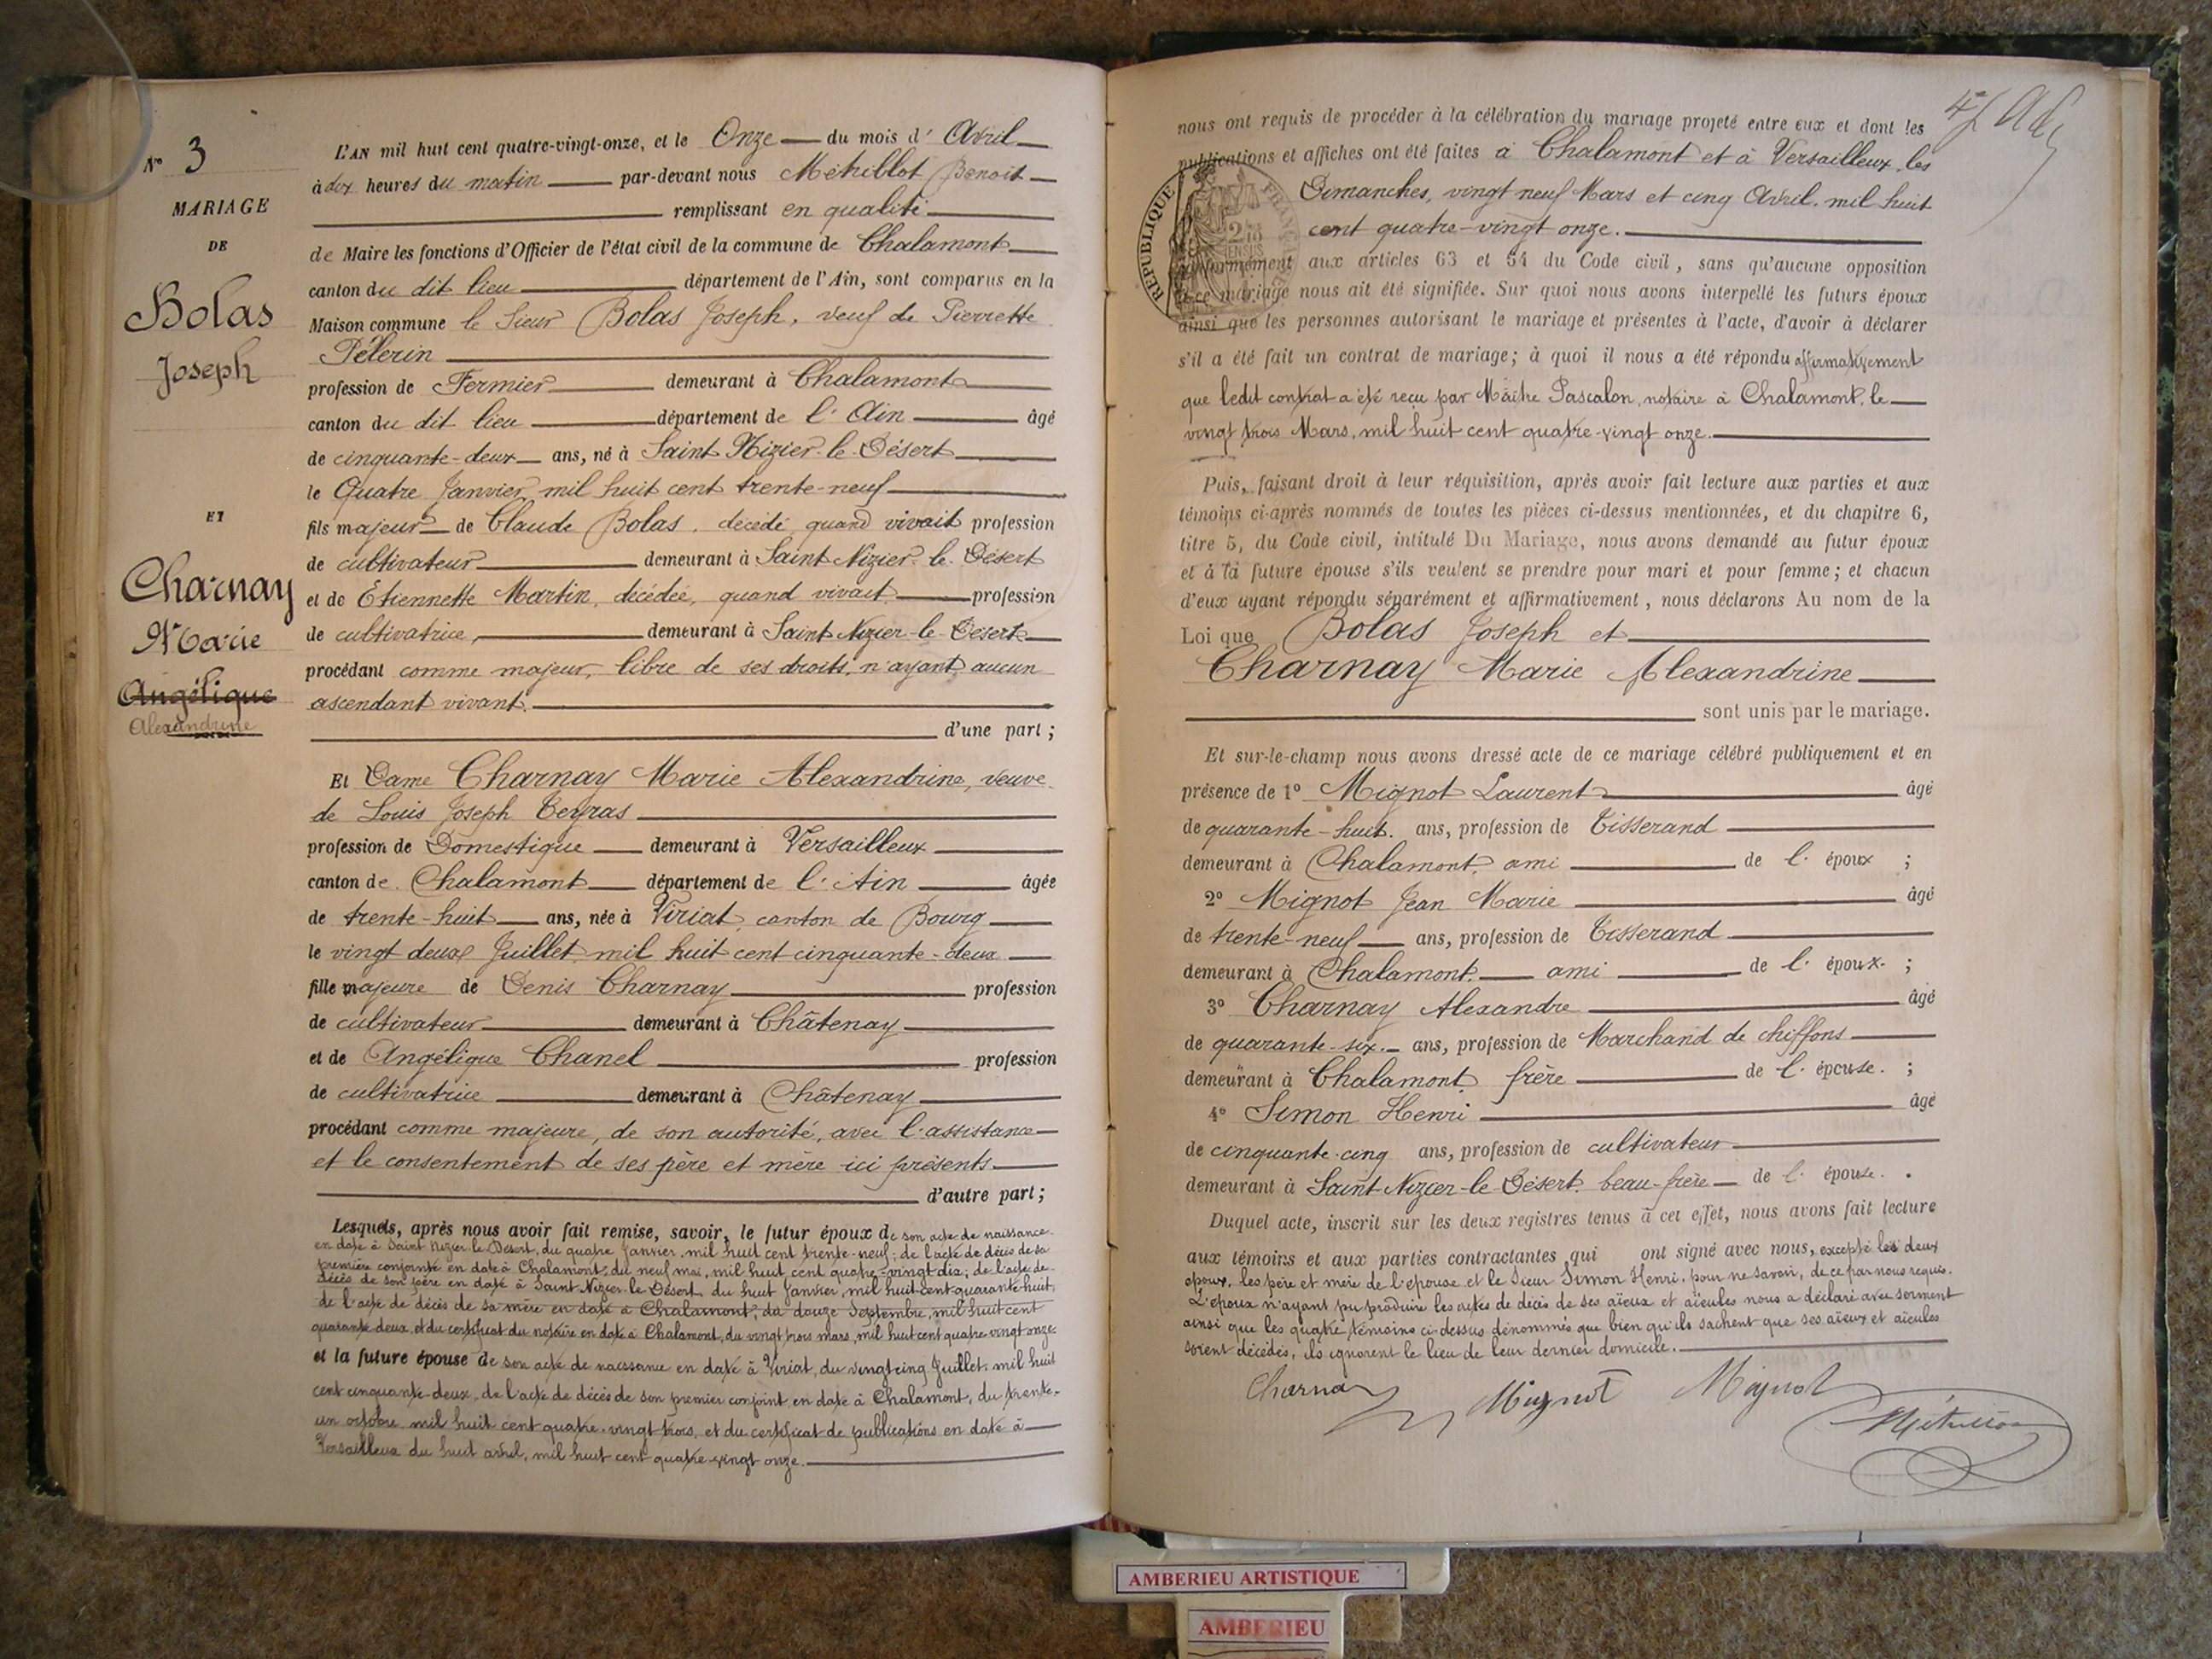 N° 3
MARIAGE
DE
Bolas
Joseph
ET
Charnay
Marie
Angélique
Alexandrine
L'AN mil huit cent quatre-vingt-onze, et le Onze du mois d' Avril
à dix heures du matin par-devant nous Methillot Benoit
remplissant en qualité
de Maire les fonctions d'Officier de l'état civil de la commune de Chalamont
canton du dit lieu département de l'Ain, sont comparus en la
Maison commune le Sieur Bolas Joseph, veuf de Pierrette
Pélerin
profession de Fermier demeurant à Chalamont
canton du dit lieu département de l'Ain âgé
de cinquante-deux ans, né à Saint Nizier-le-Désert
le Quatre Janvier mil huit cent trente-neuf
fils majeur de Claude Bolas, décédé quand vivait profession
de cultivateur demeurant à Saint Nizier-le-Désert
et de Etiennette Martin, décédée, quand vivait profession
de cultivatrice, demeurant à Saint Nizier-le-Désert
procédant comme majeur, libre de ses droits, n'ayant aucun
ascendant vivant.
d'une part ;
Et Dame Charnay Marie Alexandrine, veuve
de Louis Joseph Teyras
profession de Domestique demeurant à Versailleux
canton de Chalamont département de l'Ain âgée
de trente-huit ans, née à Viriat, canton de Bourg
le vingt deux Juillet mil huit cent cinquante-deux
fille majeure de Denis Charnay profession
de cultivateur demeurant à Châtenay
et de Angélique Chanel profession
de cultivatrice demeurant à Châtenay
procédant comme majeure, de son autorité, avec l'assistance
et le consentement de ses père et mère ici présents.
d'autre part ;
Lesquels, après nous avoir fait remise, savoir, le futur époux de son acte de naissance
en date à Saint Nizier-le-Désert, du quatre Janvier, mil huit cent trente-neuf; de l'acte de décès de sa
première conjointe en date à Chalamont, du neuf mai, mil huit cent quatre-vingt-dix; de l'acte de
décès de son père en date à Saint-Nizier-le-Désert du huit Janvier, mil huit-cent-quarante-huit,
de l'acte de décès de sa mère en date à Chalamont, du douze Septembre, mil huit cent
quarante deux, et du certificat du notaire en date à Chalamont, du vingt trois mars, mil huit cent quatre-vingt-onze
et la future épouse de son acte de naissance en date à Viriat, du vingt cinq Juillet, mil huit
cent cinquante-deux, de l'acte de décès de son premier conjoint en date à Chalamont, du trente-
un octobre mil huit cent quatre-vingt-trois, et du certificat de publications en date à
Versailleux du huit avril, mil huit cent quatre-vingt onze.
nous ont requis de procéder à la célébration du mariage projeté entre eux et dont les
publications et affiches ont été faites à Chalamont et à Versailleux, les
Dimanches, vingt neuf Mars et cinq Avril, mil huit
cent quatre-vingt onze.
RÉPUBLIQUE FRANÇAISE
conformément aux articles 63 et 64 du Code civil, sans qu'aucune opposition
à ce mariage nous ait été signifiée. Sur quoi nous avons interpellé les futurs époux
ainsi que les personnes autorisant le mariage et présentes à l'acte, d'avoir à déclarer
s'il a été fait un contrat de mariage; à quoi il nous a été répondu affirmativement
que ledit contrat a été reçu par Maître Pascalon, notaire à Chalamont, le
vingt trois Mars, mil huit cent quatre-vingt onze.
Puis, faisant droit à leur réquisition, après avoir fait lecture aux parties et aux
témoins ci-après nommés de toutes les pièces ci-dessus mentionnées, et du chapitre 6,
titre 5, du Code civil, intitulé Du Mariage, nous avons demandé au futur époux
et à la future épouse s'ils veulent se prendre pour mari et pour femme; et chacun
d'eux ayant répondu séparément et affirmativement, nous déclarons Au nom de la
Loi que Bolas Joseph et
Charnay Marie Alexandrine
sont unis par le mariage.
Et sur-le-champ nous avons dressé acte de ce mariage célébré publiquement et en
présence de 1° Mignot Laurent âgé
de quarante-huit ans, profession de Tisserand
demeurant à Chalamont, ami de l' époux ;
2° Mignot Jean Marie âgé
de trente-neuf ans, profession de Tisserand
demeurant à Chalamont, ami de l' époux. ;
3° Charnay Alexandre âgé
de quarante-six ans, profession de Marchand de chiffons
demeurant à Chalamont frère de l' épouse. ;
4° Simon Henri âgé
de cinquante-cinq ans, profession de cultivateur
demeurant à Saint-Nizier-le-Désert, beau-frère de l' épouse. .
Duquel acte, inscrit sur les deux registres tenus à cet effet, nous avons fait lecture
aux témoins et aux parties contractantes qui ont signé avec nous, excepté les deux
époux, les père et mère de l'épouse et le Sieur Simon Henri, pour ne savoir, de ce par nous requis.
L'époux n'ayant pu produire les actes de décès de ses aïeux et aïeules nous a déclaré avec serment
ainsi que les quatre témoins ci-dessus dénommés que bien qu'ils sachent que ses aïeux et aïeules
soient décédés, ils ignorent le lieu de leur dernier domicile.
Charnay Mignot Mignot
AMBERIEU ARTISTIQUE
AMBERIEU